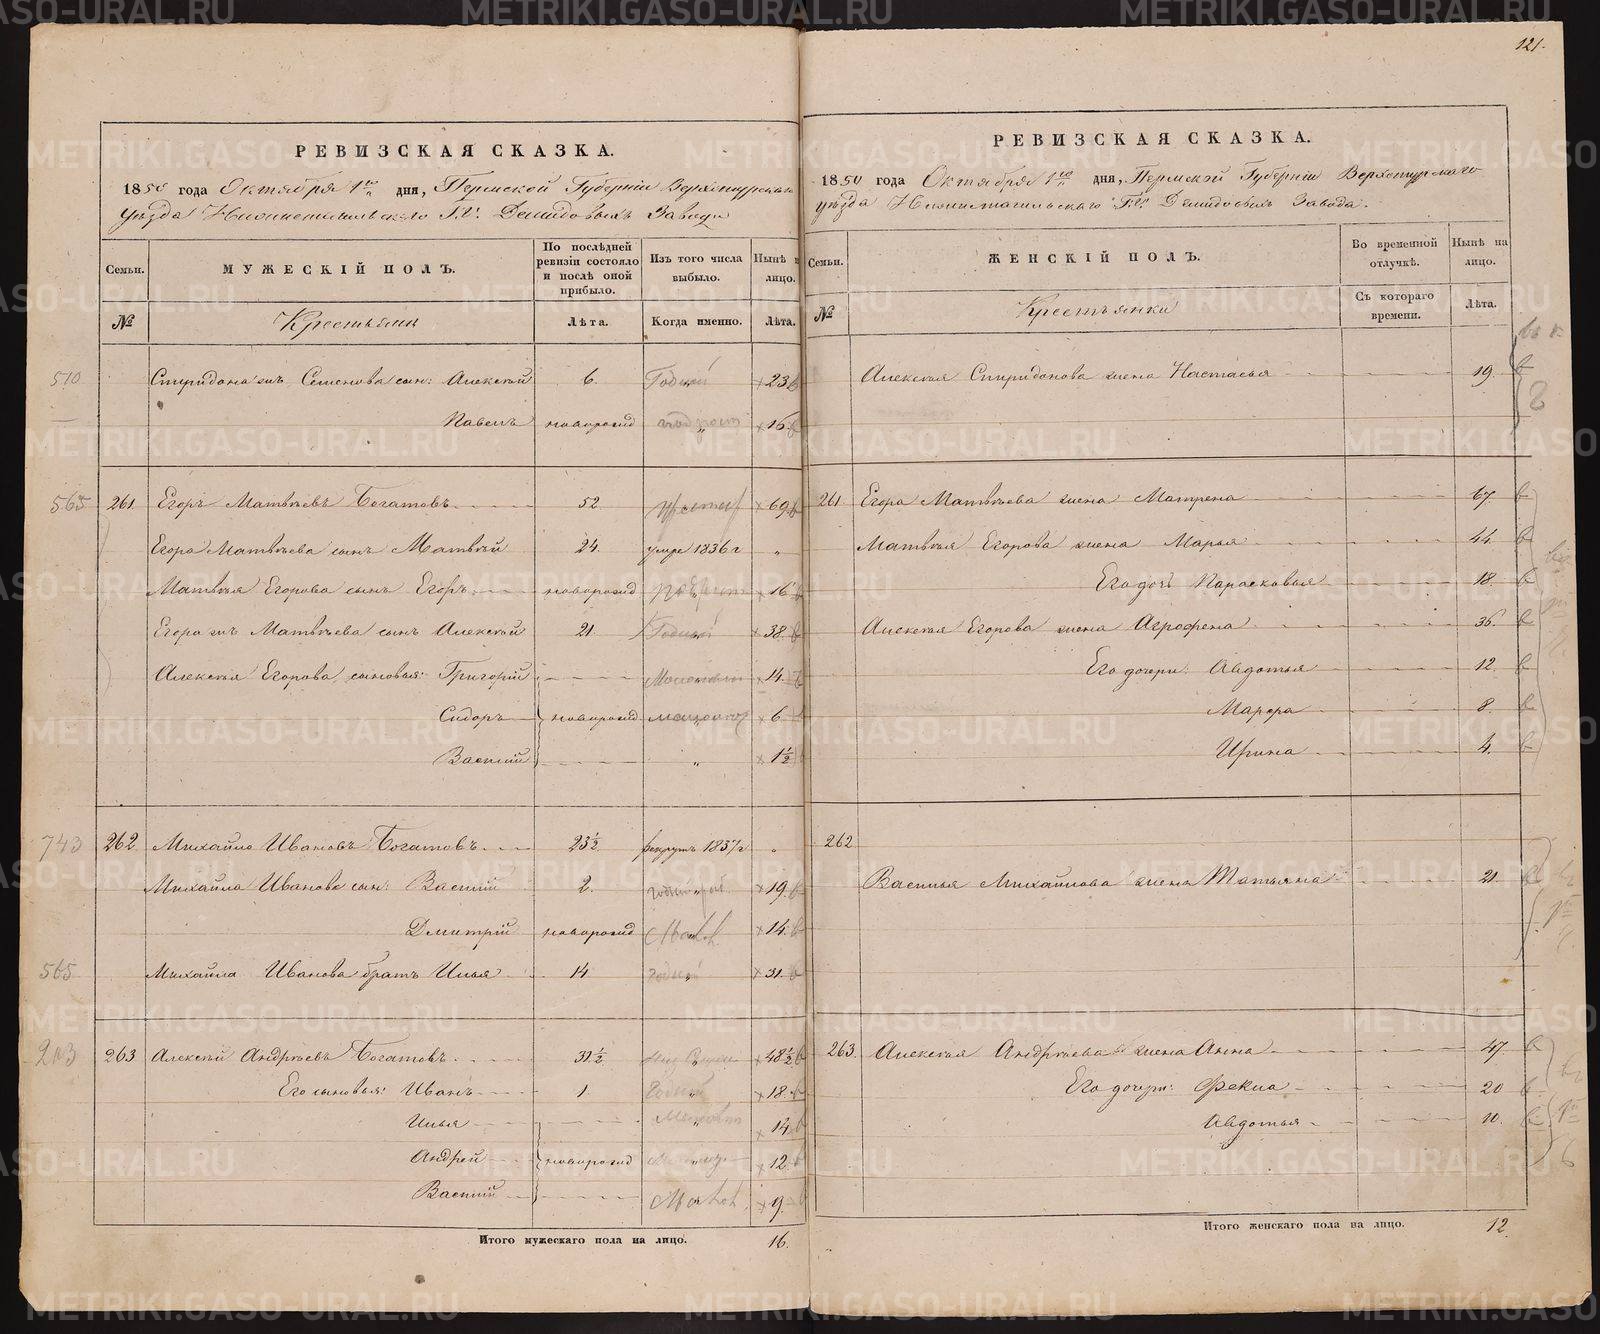 121.
РЕВИЗСКАЯ СКАЗКА.
1850 года Октября 1го дня, Пермской Губерніи Верхотурскаго
уѣзда Нижнетагильскаго Г.г. Демидовыхъ Завода
Семьи.
МУЖЕСКІЙ ПОЛЪ.
По послѣдней ревизіи состояло и послѣ оной прибыло.
Изъ того числа выбыло.
Нынѣ на лицо.
№
Крестьяне
Лѣта.
Когда именно.
Лѣта.
510 Спиридона Семенова сын: Алексѣй 6. Годный 23
Павелъ новорожд 16
565 261. Егоръ Матвѣевъ Богатовъ 52. 69
Егора Матвѣева сынъ Матвѣй 24. умре 1836 г „
Матвѣя Егорова сынъ Егоръ новорожд 16
Егора Матвѣева сынъ Алексѣй 21. Годный 38.
Алексѣя Егорова сыновья: Григорій 14.
Сидоръ новорожд 6
Василій „ 1½
743 262. Михайло Ивановъ Богатовъ 23½ рекрутъ 1837 г „
Михайла Иванова сын: Василій 2. 19.
Дмитрій новорожд 14.
565 Михайла Иванова братъ Илья 14 годный 31.
203 263 Алексѣй Андреевъ Богатовъ 31½ 48½
Его сыновья: Иванъ 1. Годный 18.
Илья 14
Андрей новорожд 12.
Василій 9.
Итого мужескаго пола на лицо. 16.
РЕВИЗСКАЯ СКАЗКА.
1850 года Октября 1го дня, Пермской Губерніи Верхотурскаго
уѣзда Нижнетагильскаго Г.г. Демидовыхъ Завода.
Семьи.
ЖЕНСКІЙ ПОЛЪ.
Во временной отлучкѣ.
Нынѣ на лицо.
№
Крестьянки
Съ котораго времени.
Лѣта.
Алексѣя Спиридонова жена Настасья 19.
261. Егора Матвѣева жена Матрена 67.
Матвѣя Егорова жена Марья 44.
Его дочь Парасковья 18.
Алексѣя Егорова жена Аграфена 36.
Его дочери: Авдотья 12.
Марфа 8.
Ирина 4.
262
Василья Михайлова жена Татьяна 21.
263. Алексѣя Андреева жена Анна 47.
Его дочери: Фекла 20
Авдотья 10.
Итого женскаго пола на лицо. 12.
METRIKI.GASO-URAL.RU